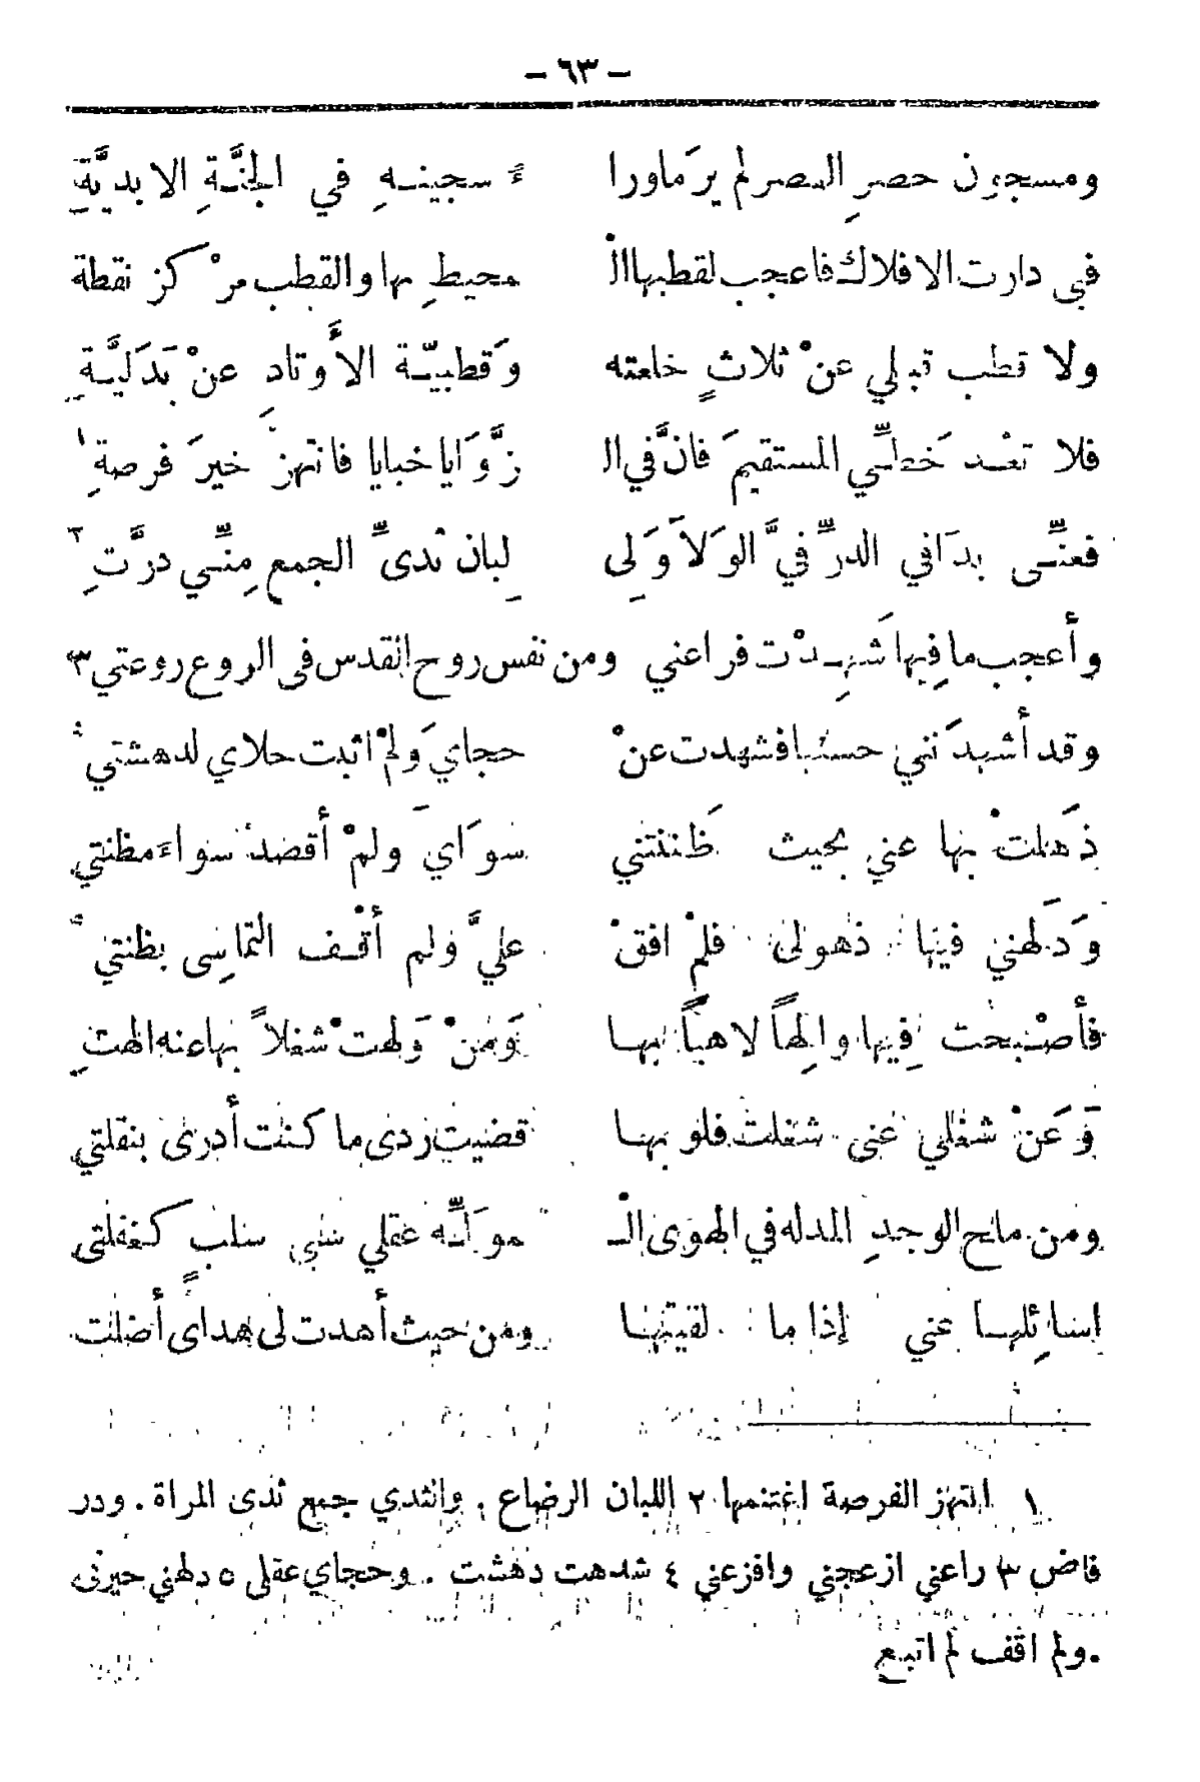 - ٦٣ -
ومسجون حصرِ العصر لم يرَ ماورا ءَ سجينهِ في الجنَّةِ الابديَّةِ
فبي دارت الافلاك فاعجب لقطبها الْ محيطِ بها والقطب مرْكز نقطة
ولا قطب قبلي عنْ ثلاثٍ خلفته وَقطبيّة الأَوتادِ عنْ بَدَليَّةِ
فلا تعْد خَطِّي المستقيمَ فانَّ في ال زَّوَايا خبايا فانتهزْ خيرَ فرصةِ ١
فعنِّي بدَا في الدرِّ فيَّ الوَلاَ وَلِى لِبان ثدىِّ الجمعِ مِنِّي درَّتِ ٢
وأعجب ما فِيها شَهِدْت فراعني ومن نفس روح القدس فى الروع روعتي ٣
وقد أشهدَتني حسنها فشهدت عنْ حجايَ ولمْ اثبت حلاي لدهشتي ٤
ذَهلتْ بها عني بحيث ظَننتني سوَايَ ولمْ أقصد سواءَ مظنتي
وَدَلهني فيها ذهولى فلمْ افقْ عليَّ ولم أقْف التماسِى بظنتي ٥
فأصْبحت فِيها والِهاً لاهياً بها وَمنْ وَلهت شغلاً بها عنه الهتِ
وَعَنْ شغلي عنى شغلت فلو بها قضيت ردى ما كنت أدرى بنقلتي
ومن ملح الوجدِ المدله في الهوى الْ مولَّه عقلي سَبي سلبٍ كغفلتى
اسائِلها عني إذا ما لقيتها ومن حيث أهدت لى هداى أضلت
١ انتهز الفرصة اغتنمها ٢ اللبان الرضاع . والثدي جمع ثدى المراة . ودر
فاض ٣ راعني ازعجني وافزعني ٤ شدهت دهشت . وحجاي عقلى ٥ دلهني حيرنى
. ولم اقف لم اتبع